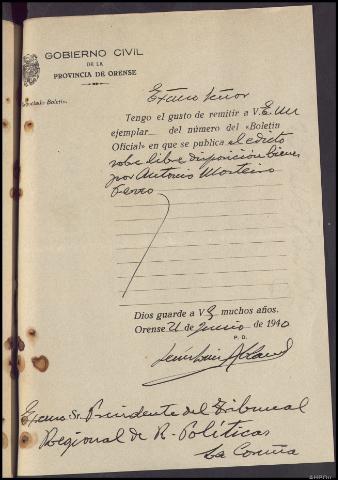 GOBIERNO CIVIL
DE LA
PROVINCIA DE ORENSE
Excmo Señor
Tengo el gusto de remitir a V. E. un
ejemplar del número del «Boletín
Oficial» en que se publica el edicto
sobre libre disposición bienes
por Antonio Monteiro
Dios guarde a V. E. muchos años.
Orense 21 de Junio de 1940
P. D.
Excmo Sr. Presidente del Tribunal
Regional de R. Políticas
La Coruña